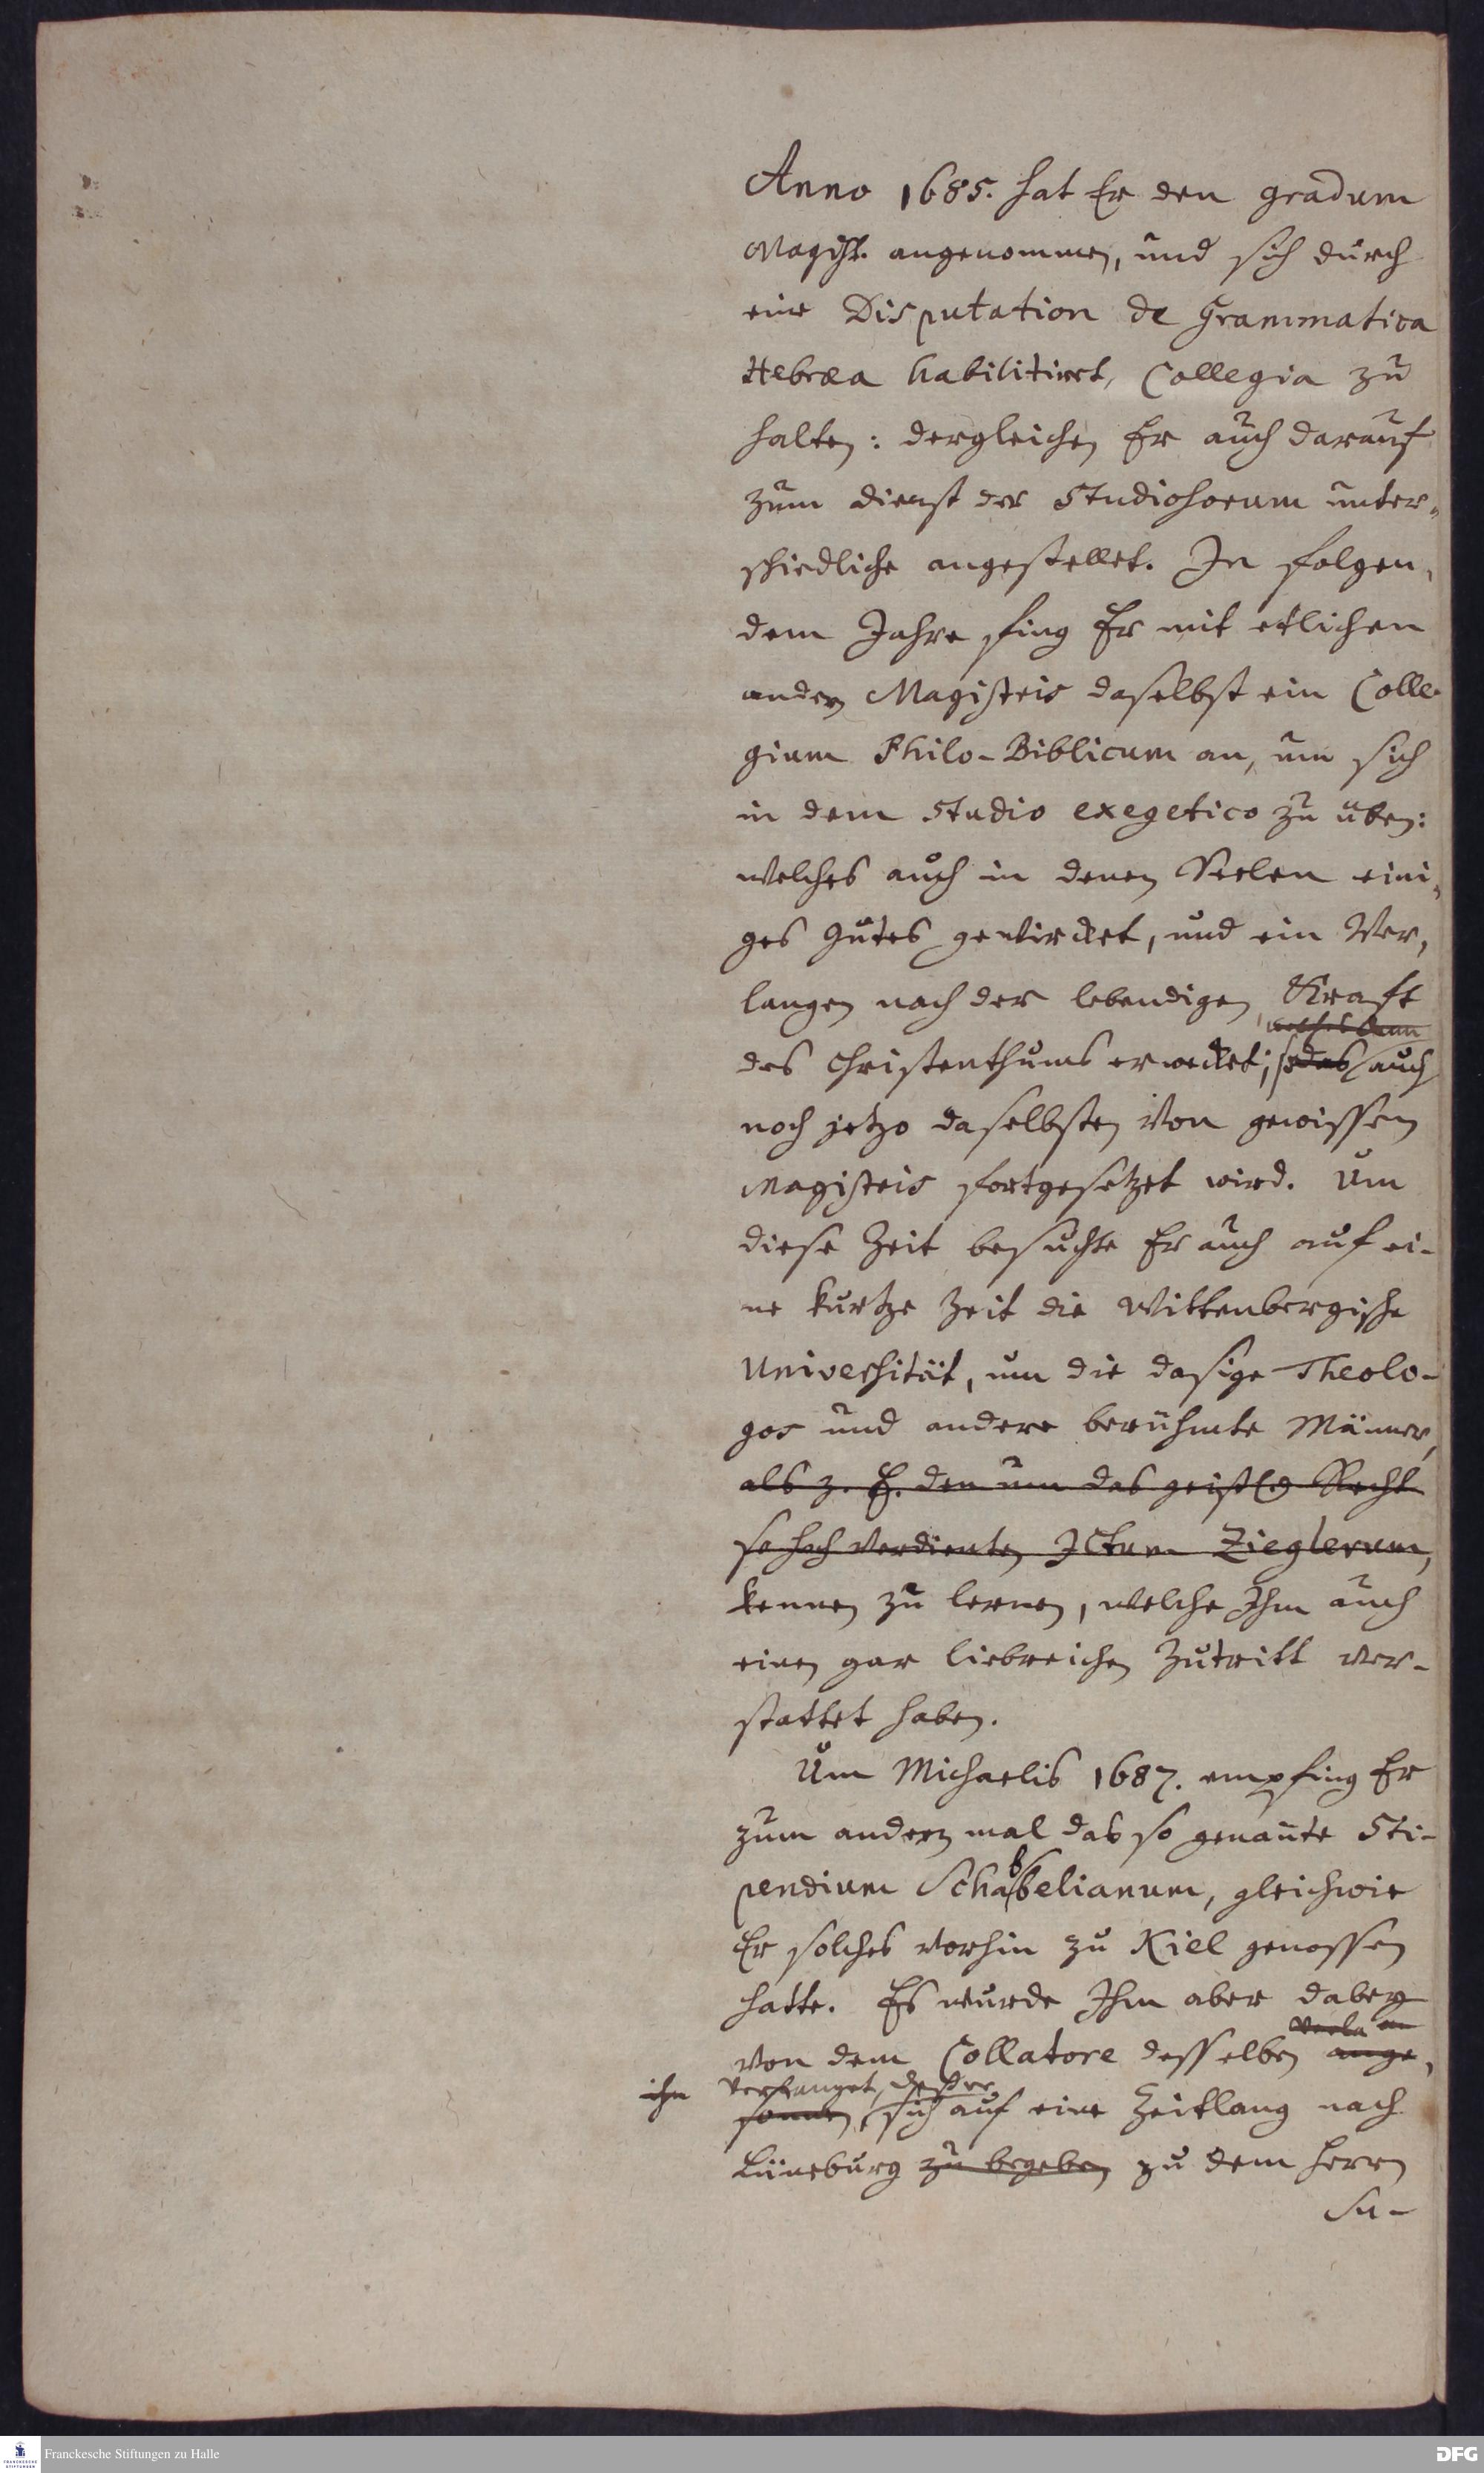 Anno 1685. hat Er den gradum
Magist. angenommen, und sich durch
eine Disputation de Grammatica
Hebræa habilitiret, Collegia zu
halten: dergleichen Er auch darauf
zum dienst der Studiosorum unter,,
schiedliche angestellet. In folgen,
dem Jahre fing Er mit etlichen
andern Magistris daselbst ein Colle-
gium Philo-Biblicum an, um sich
in dem Studio exegetico zu üben:
welches auch in denen Seelen eini,,
ges Gutes gewircket, und ein Ver,
langen nach der lebendigen Krafft
welches dann
des Christenthums erwecket; so das auch
noch jetzo daselbsten von gewissen
Magistris fortgesetzet wird. Um
diese Zeit besuchte Er auch auf ei-
ne kurtze Zeit die Wittenbergische
Universität, um die dasige Theolo-
gos und andere berühmte Männer,
als z. E. den um das geistl. Recht
so hoch verdienten JCtum Zieglerum,
kennen zu lernen, welche Ihm auch
einen gar liebreichen Zutritt ver-
stattet haben.
Um Michaelis 1687. empfing Er
zum andern mal das so genañte Sti-
pendium Schabbelianum, gleichwie
Er solches vorhin zu Kiel genossen
hatte. Es wurde Ihm aber dabey
von dem Collatore desselben ange,
ihn verlanget, daß er
sonnen, sich auf eine Zeitlang nach
Lüneburg zu begeben zu dem Herrn
Su-
Franckesche Stiftungen zu Halle
DFG